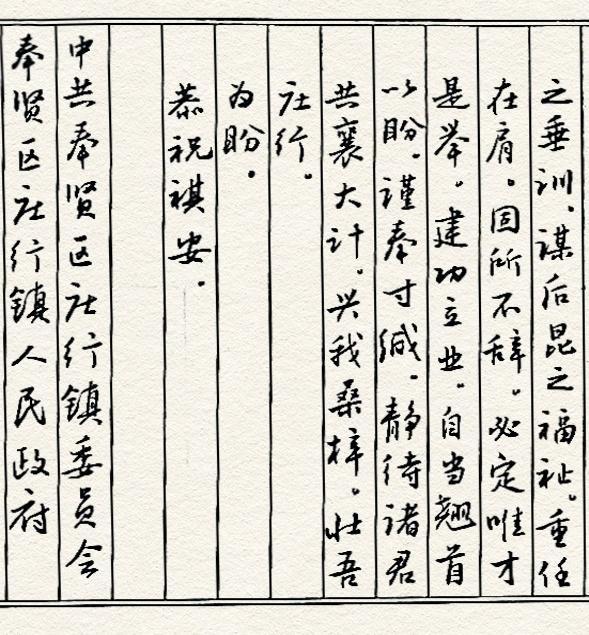 之垂训。谋后昆之福祉。重任
在肩。固所不辞。必定唯才
是举。建功立业。自当翘首
以盼。谨奉寸缄。静待诸君
共襄大计。兴我桑梓。壮吾
庄行。
为盼。
恭祝祺安。
中共奉贤区庄行镇委员会
奉贤区庄行镇人民政府